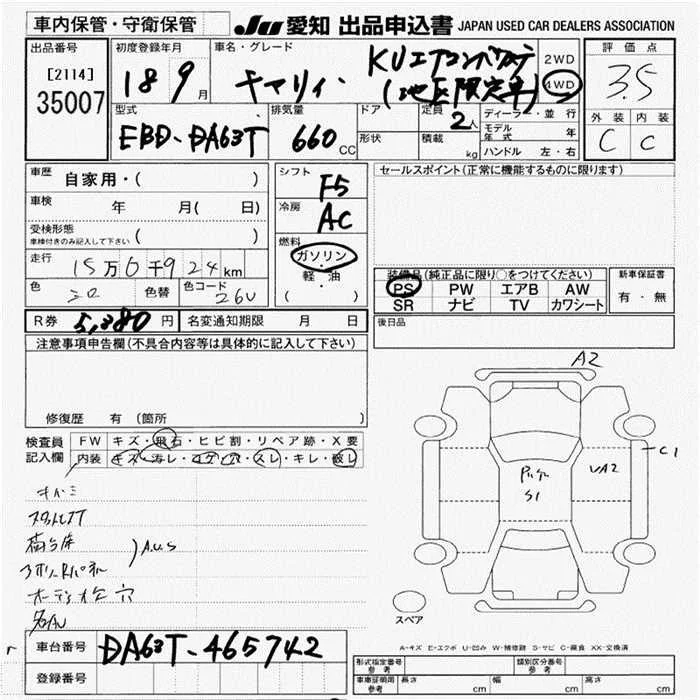 車内保管・守衛保管 JU 愛知 出品申込書 JAPAN USED CAR DEALERS ASSOCIATION
出品番号 初度登録年月 車名・グレード 評価点
[2114]
35007
18 9月
キャリイ・
KUエアコンパワステ
(地区限定車)
2WD
4WD
3.5
型式 排気量 ドア 定員 ディーラー・並行 外装 内装
EBD-DA63T 660CC 2人
形状 積載 kg モデル年式 年
ハンドル 左・右
C C
車歴 自家用・( )
シフト F5
セールスポイント(正常に機能するものに限ります)
車検 年 月(日)
冷房 AC
受検形態
車検付きのみ記入して下さい( )
燃料 ガソリン・軽・油
( )
走行 15万6千924km
装備品(純正品に限り○をつけてください) 新車保証書
色 シロ 色替 色コード 26U
PS PW エアB AW 有・無
SR ナビ TV カワシート
R券 5,380円 名変通知期限 月 日
後日品
注意事項申告欄(不具合内容等は具体的に記入して下さい)
修復歴 有(箇所 )
検査員記入欄
FW キズ・飛石・ヒビ割・リペア跡・X要
内装 キズ・汚レ・コゲ・穴・スレ・キレ・破レ
A.U.S
A2
C1
UA2
S1
スペア
A-キズ E-エクボ U-凹み W-補修跡 S-サビ C-腐食 XX-交換済
車台番号 DA63T-465742
登録番号
形式指定番号 参考 類別区分番号 参考
車庫証明用 参考 長さ cm 幅 cm 高さ cm